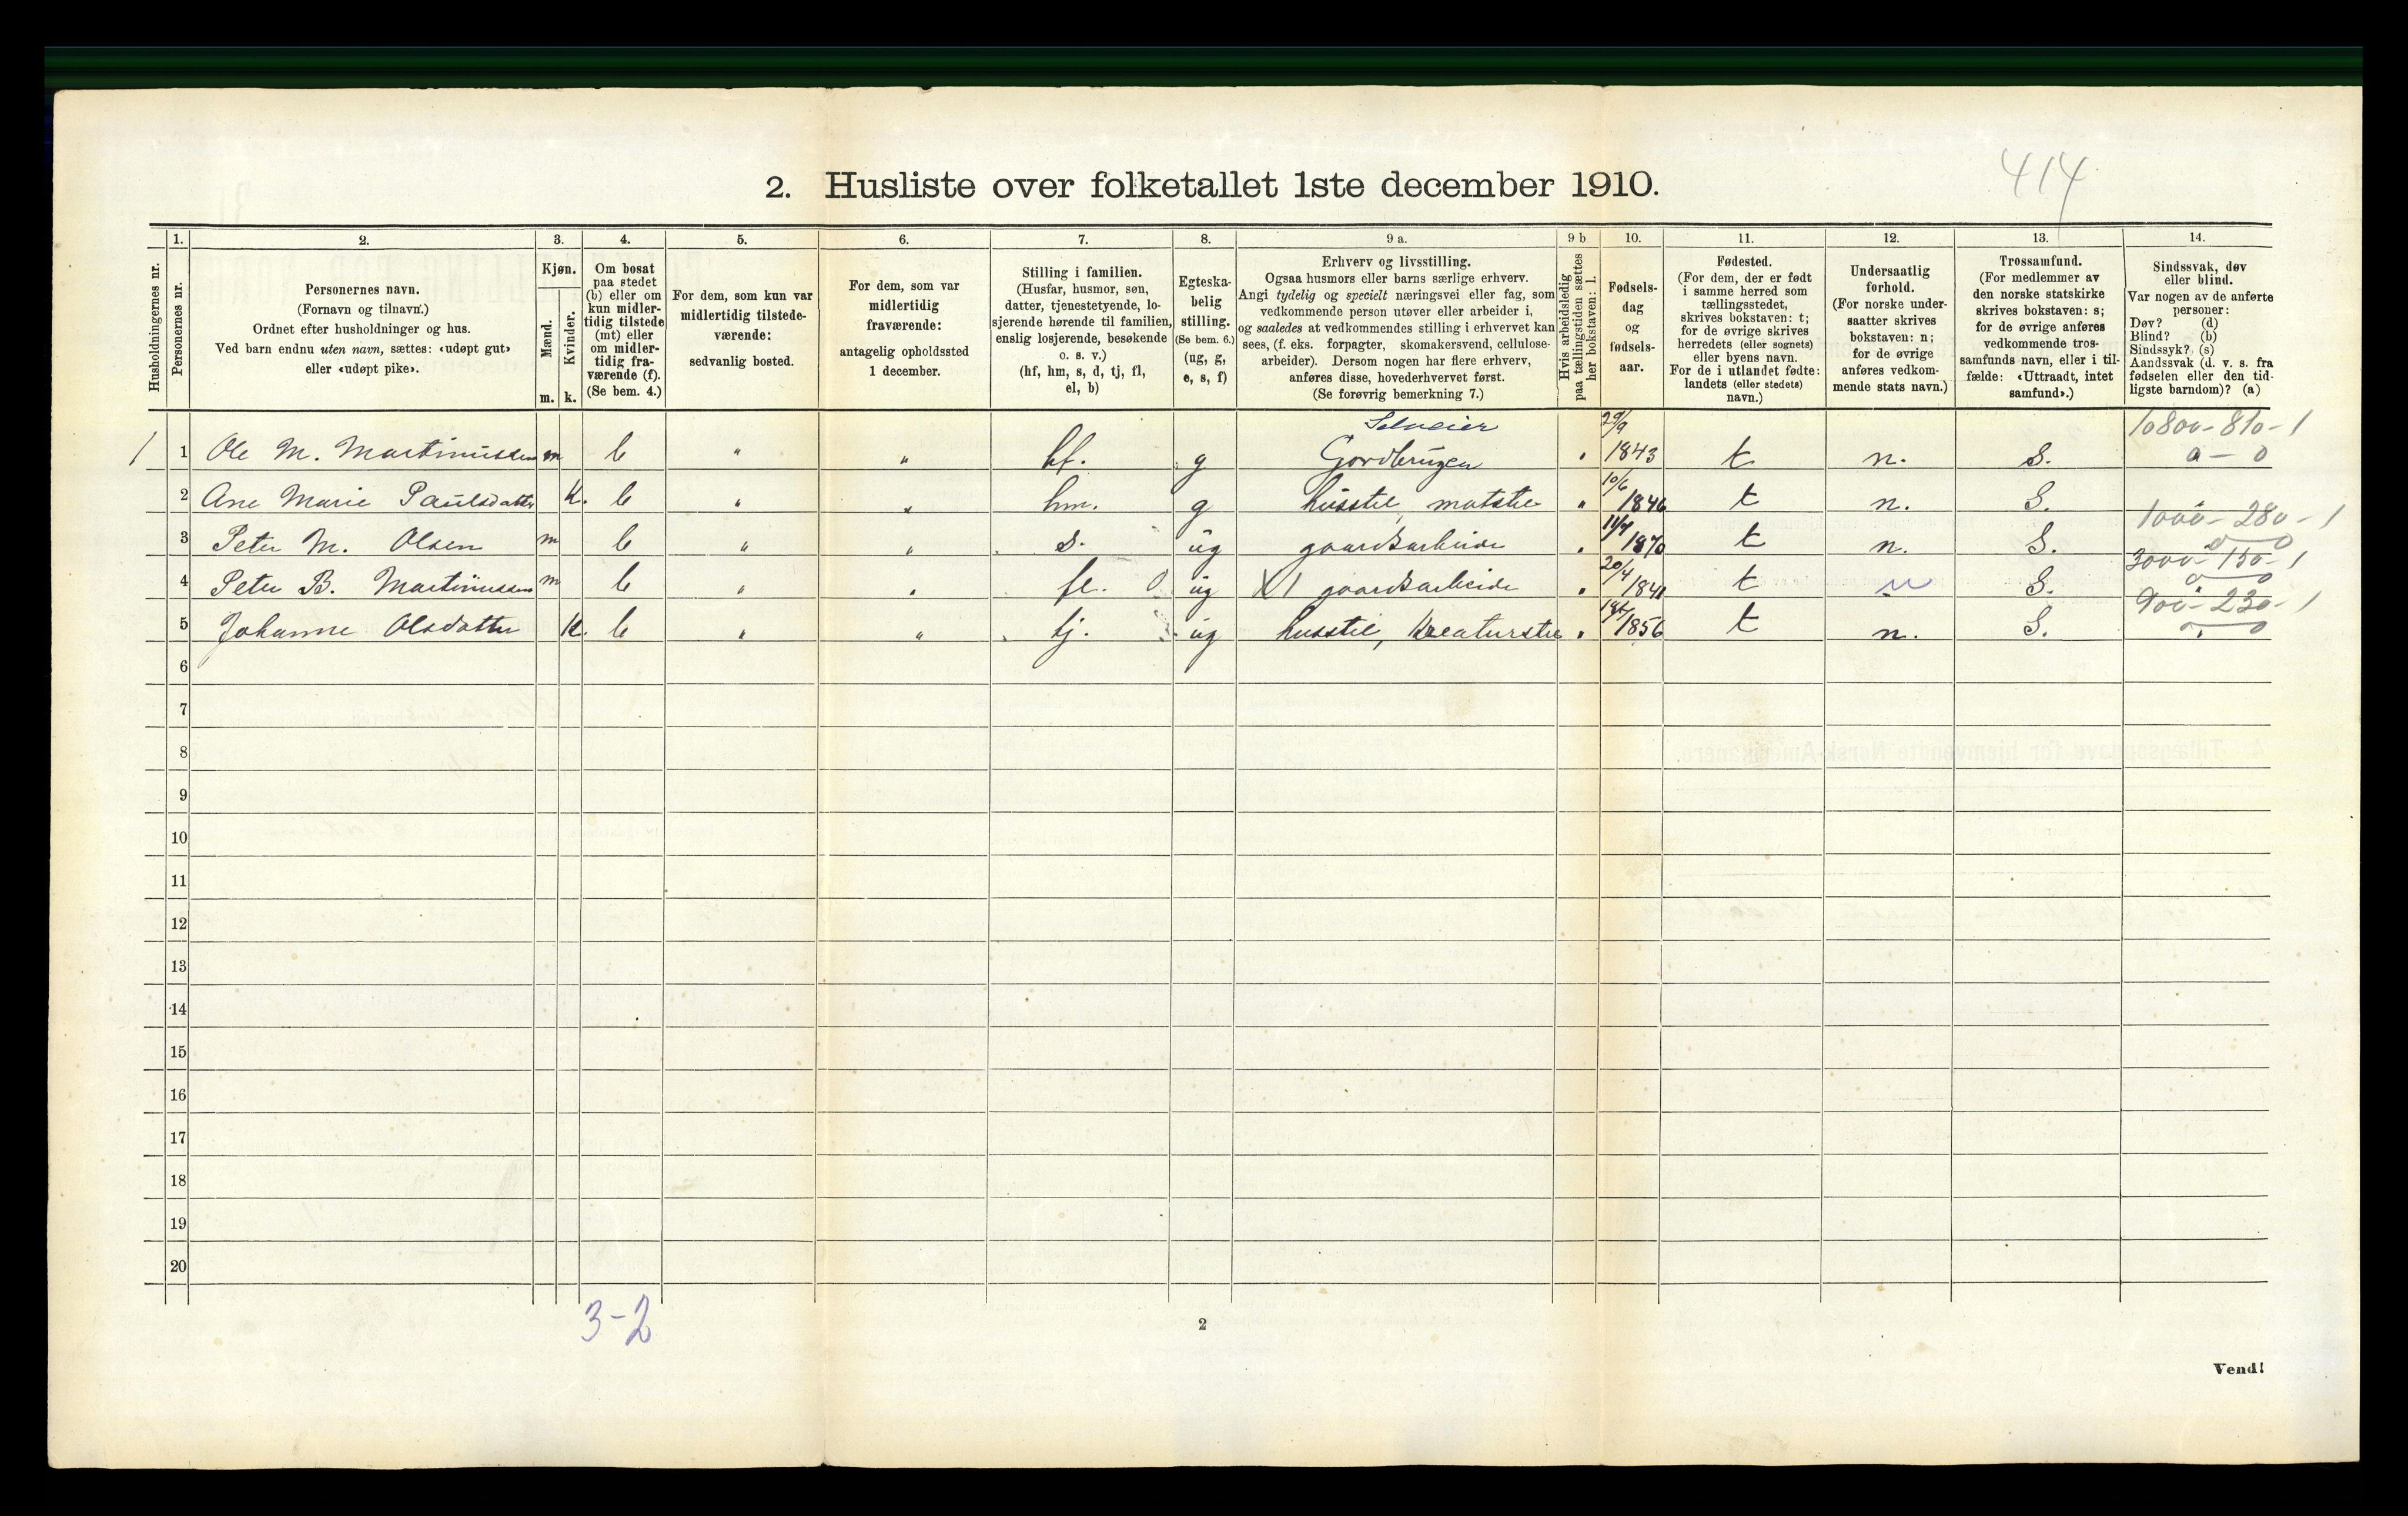 414
2. Husliste over folketallet 1ste december 1910.
Husholdningernes nr.
1. Personernes nr.
2. Personernes navn.
(Fornavn og tilnavn.)
Ordnet efter husholdninger og hus.
Ved barn endnu uten navn, sættes: «udøpt gut»
eller «udøpt pike».
3. Kjøn.
Mænd. m.
Kvinder. k.
4. Om bosat
paa stedet
(b) eller om
kun midler-
tidig tilstede
(mt) eller
om midler-
tidig fra-
værende (f).
(Se bem. 4.)
5. For dem, som kun var
midlertidig tilstede-
værende:
sedvanlig bosted.
6. For dem, som var
midlertidig
fraværende:
antagelig opholdssted
1 december.
7. Stilling i familien.
(Husfar, husmor, søn,
datter, tjenestetyende, lo-
sjerende hørende til familien,
enslig losjerende, besøkende
o. s. v.)
(hf, hm, s, d, tj, fl,
el, b)
8. Egteska-
belig
stilling.
(Se bem. 6.)
(ug, g,
e, s, f)
9 a. Erhverv og livsstilling.
Ogsaa husmors eller barns særlige erhverv.
Angi tydelig og specielt næringsvei eller fag, som
vedkommende person utøver eller arbeider i,
og saaledes at vedkommendes stilling i erhvervet kan
sees, (f. eks. forpagter, skomakersvend, cellulose-
arbeider). Dersom nogen har flere erhverv,
anføres disse, hovederhvervet først.
(Se forøvrig bemerkning 7.)
9 b
Hvis arbeidsledig
paa tællingstiden sættes
her bokstaven: l.
10. Fødsels-
dag
og
fødsels-
aar.
11. Fødested.
(For dem, der er født
i samme herred som
tællingsstedet,
skrives bokstaven: t;
for de øvrige skrives
herredets (eller sognets)
eller byens navn.
For de i utlandet fødte:
landets (eller stedets)
navn.)
12. Undersaatlig
forhold.
(For norske under-
saatter skrives
bokstaven: n;
for de øvrige
anføres vedkom-
mende stats navn.)
13. Trossamfund.
(For medlemmer av
den norske statskirke
skrives bokstaven: s;
for de øvrige anføres
vedkommende tros-
samfunds navn, eller i til-
fælde: «Uttraadt, intet
samfund».)
14. Sindssvak, døv
eller blind.
Var nogen av de anførte
personer:
Døv? (d)
Blind? (b)
Sindssyk? (s)
Aandssvak (d. v. s. fra
fødselen eller den tid-
ligste barndom)? (a)
Selveier 10800-810-1
1 1 Ole M. Martinussen m b " " hf. g Gordbruger " 29/9 1843 t n. S. a - 0
2 Ane Marie Paulsdatter K. b " " hm. g husstel, matstel " 10/6 1846 t n. S.
1000-280-1
3 Peter M. Olsen m b " " s. ug gaardsarbeide " 11/4 1870 t n. S.
3000-150-1
4 Peter B. Martinussen m b " " fl. 0 ug X1 gaardsarbeide " 20/4 1841 t n S.
900-230-1
5 Johanne Olsdatter K. b " " tj. ug husstel, Kreaturstel " 1856 t n. S.
6
7
8
9
10
11
12
13
14
15
16
17
18
19
20
3-2
2
Vend!